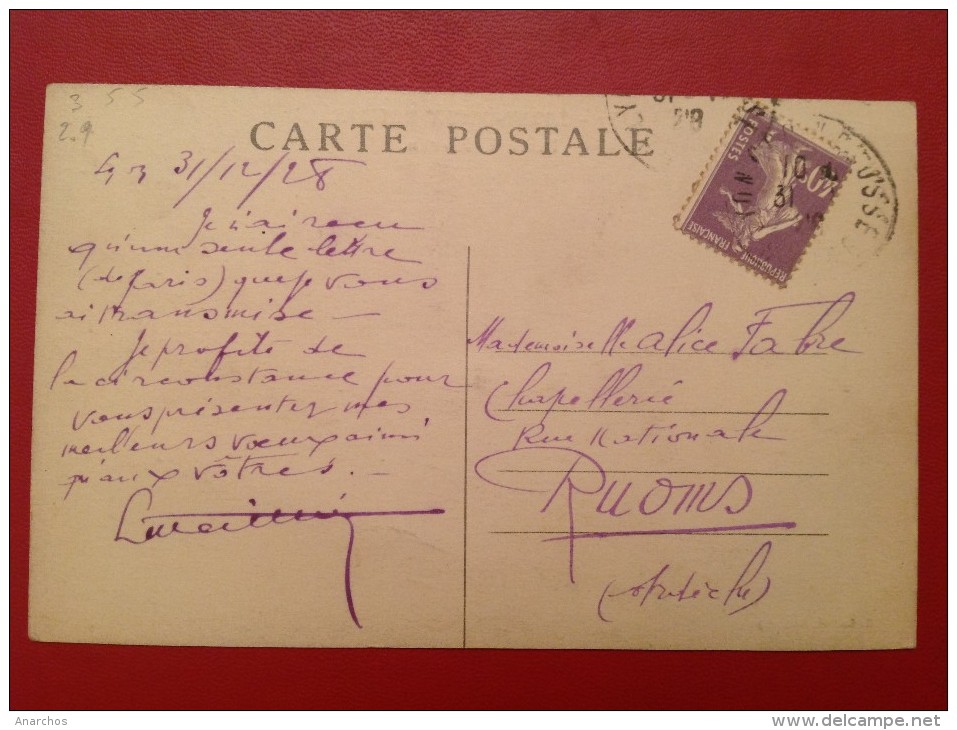 3 55
2.9
CARTE POSTALE
31/12/28
Je n'ai reçu
qu'une seule lettre
(de Paris) que je vous
ai transmise —
Je profite de
la circonstance pour
vous présenter mes
meilleurs vœux ainsi
qu'aux vôtres. —
Mademoiselle Alice Fabre
Chapellerie
Rue Nationale
RUOMS
(Ardèche)
POSTES
40
REPUBLIQUE FRANÇAISE
10
31
28
Anarchos
www.delcampe.net